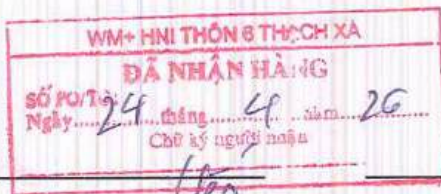 WM+ HNI THÔN 6 THẠCH XÁ
ĐÃ NHẬN HÀNG
SỐ PO/
Ngày 24 tháng 4 năm 26
Chữ ký người nhận